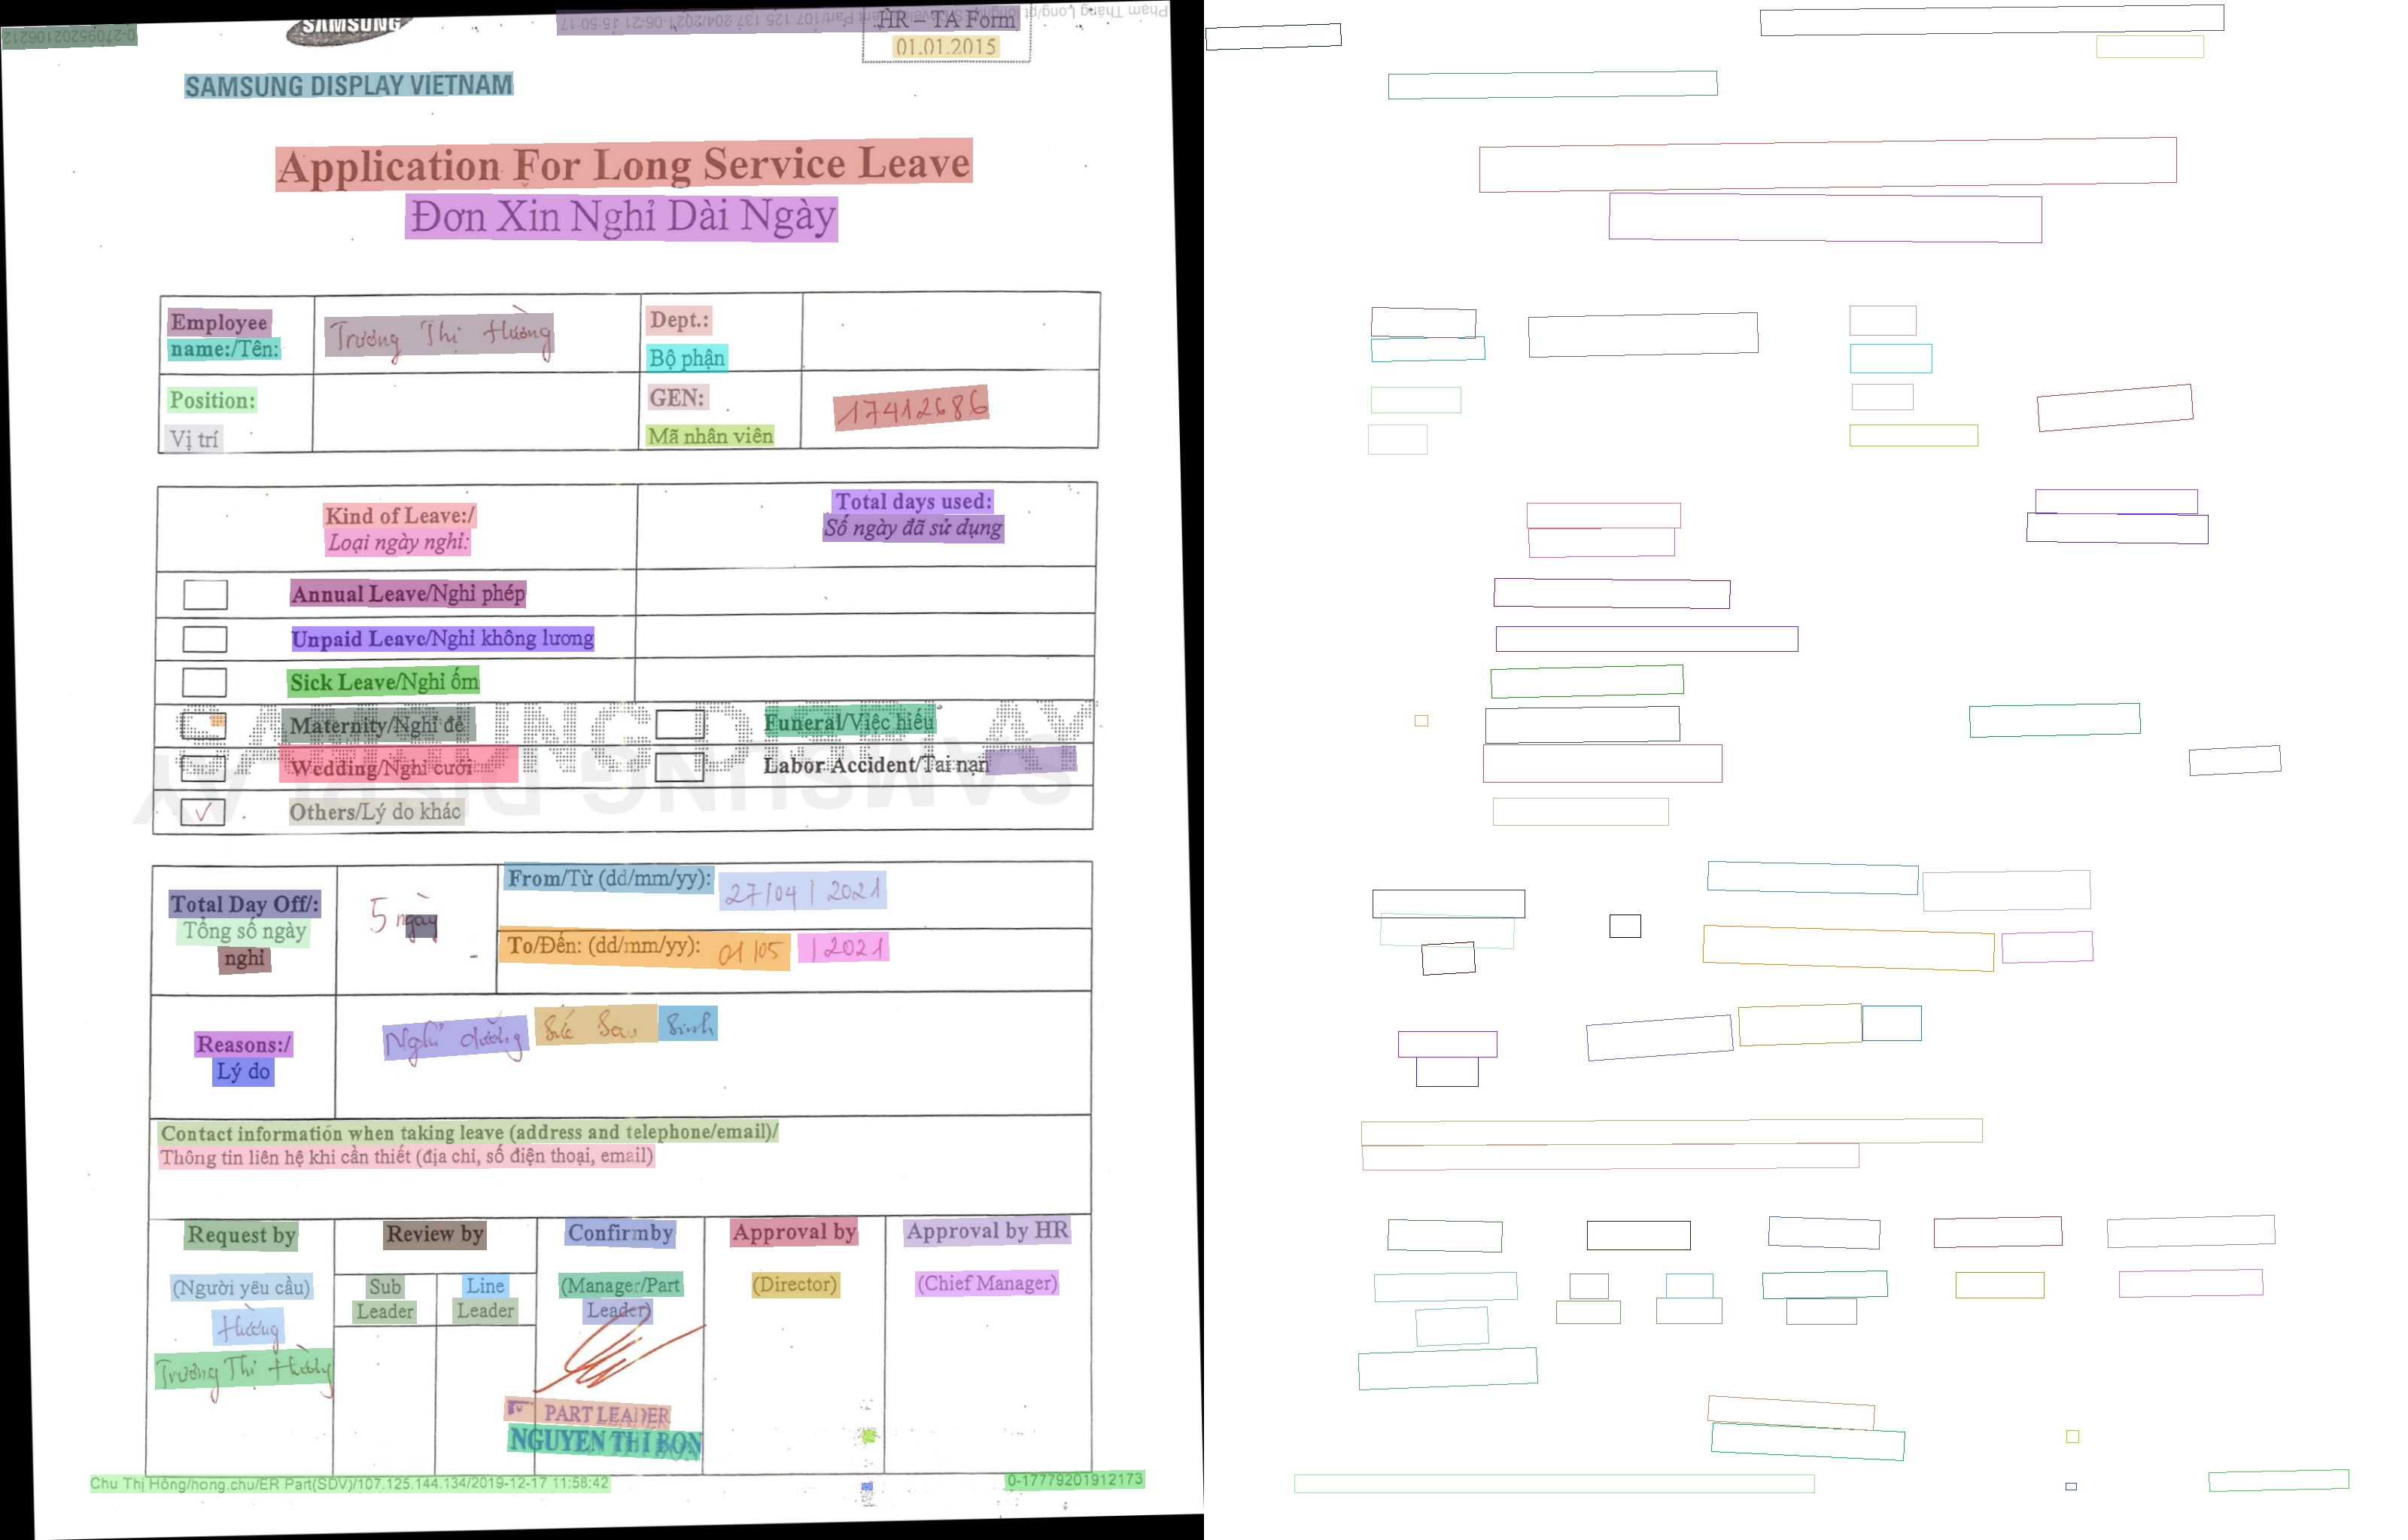 SAMSUNG
HR – TA Form
01.01.2015
SAMSUNG DISPLAY VIETNAM
Application For Long Service Leave
Đơn Xin Nghỉ Dài Ngày
Employee name:/Tên:
Trương Thị Hường
Dept.:
Bộ phận
Position:
Vị trí
GEN:
Mã nhân viên
17412686
Kind of Leave:/
Loại ngày nghỉ:
Total days used:
Số ngày đã sử dụng
Annual Leave/Nghỉ phép
Unpaid Leave/Nghỉ không lương
Sick Leave/Nghỉ ốm
Maternity/Nghỉ đẻ
Funeral/Việc hiếu
Wedding/Nghỉ cưới
Labor Accident/Tai nạn
Others/Lý do khác
SAMSUNG DISPLAY
SAMSUNG DISPLAY
Total Day Off/:
Tổng số ngày
nghỉ
5 ngày
From/Từ (dd/mm/yy): 27/04/2021
To/Đến: (dd/mm/yy): 01/05/2021
Reasons:/
Lý do
Nghỉ dưỡng sức sau sinh
Contact information when taking leave (address and telephone/email)/
Thông tin liên hệ khi cần thiết (địa chỉ, số điện thoại, email)
Request by
Review by
Confirmby
Approval by
Approval by HR
(Người yêu cầu)
Sub
Leader
Line
Leader
(Manager/Part
Leader)
(Director)
(Chief Manager)
Hường
Trương Thị Hường
PART LEADER
NGUYEN THI BON
Chu Thị Hồng/hong.chu/ER Part(SDV)/107.125.144.134/2019-12-17 11:58:42
0-17779201912173